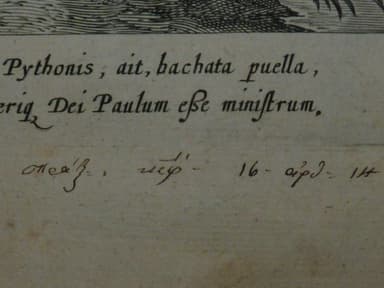 Pythonis, ait, bachata puella,
eriq Dei Paulum eſse miniſtrum.
πράξ=. κεφ- 16- ἀρθ= 14